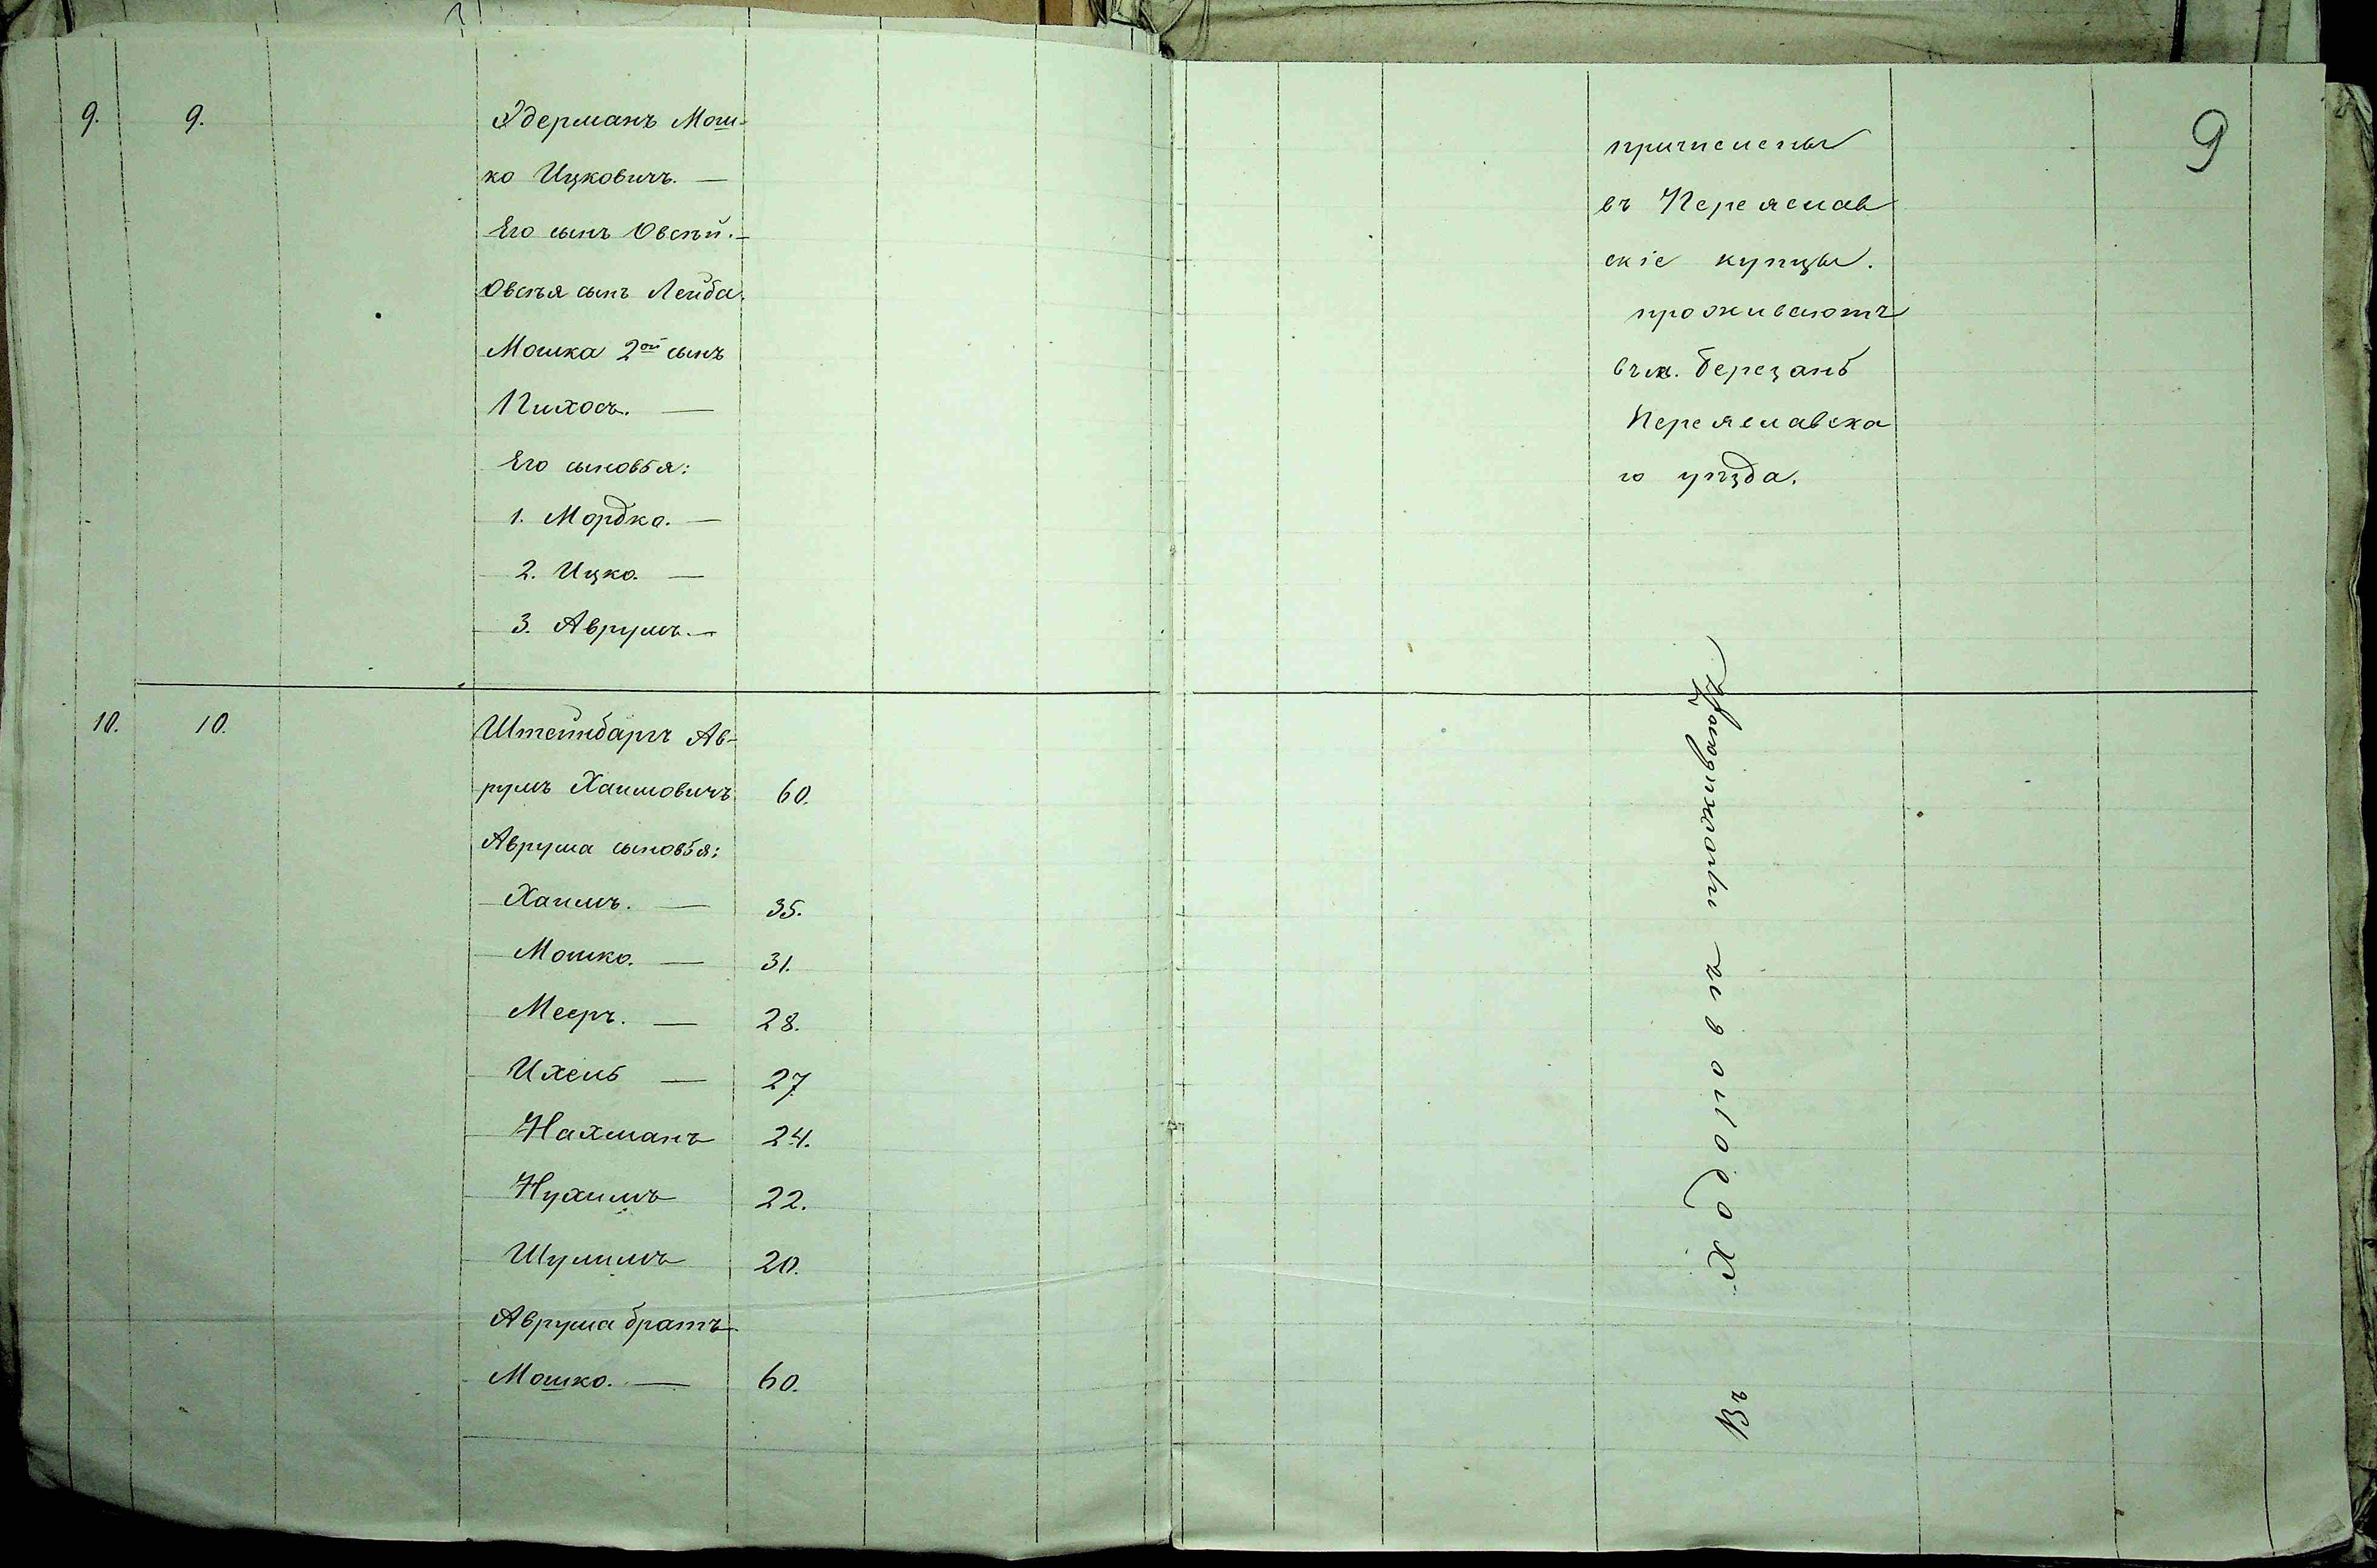 9. 9. Эдерманъ Мош-
ко Ицковичъ. —
Его сынъ Овсѣй. —
Овсѣя сынъ Лейба.
Мошка 2ой сынъ
Пихосъ. —
Его сыновья:
1. Мордко. —
2. Ицко. —
3. Аврумъ. —
причислены
въ Переяслав
скіе купцы.
проживаютъ
въ м. Березань
Переяславска
го уѣзда.
9
10. 10. Штейнбаргъ Ав-
румъ Хаимовичъ 60.
Аврума сыновья:
Хаимъ. — 35.
Мошко. — 31.
Мееръ. — 28.
Ихель — 27
Нахманъ 24.
Нухимъ 22.
Шулимъ 20.
Аврума братъ
Мошко. — 60.
Въ